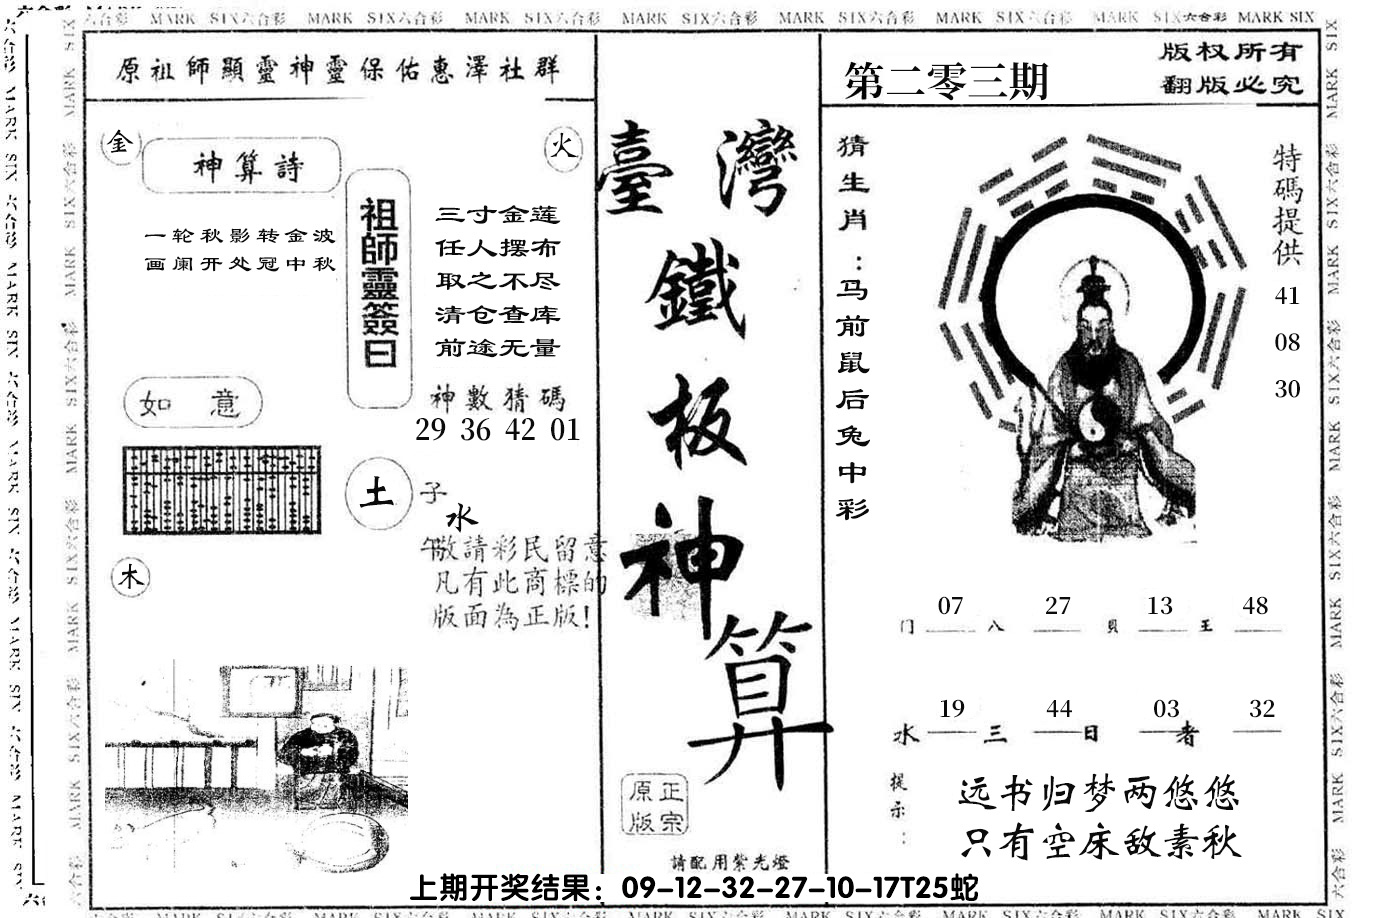 六合彩 MARK SIX六合彩 MARK SIX六合彩 MARK SIX六合彩 MARK SIX六合彩 MARK SIX六合彩 MARK SIX六合彩 MARK SIX六合彩 MARK SIX
原祖師顯靈神靈保佑惠澤社群
金
火
神算詩
一轮秋影转金波
画阑开处冠中秋
祖師靈簽曰
三寸金莲
任人摆布
取之不尽
清仓查库
前途无量
如 意
神數猜碼
29 36 42 01
土
子
水
午
敬請彩民留意
凡有此商標的
版面為正版!
木
臺灣
鐵
板
神
算
正宗
原版
請配用紫光燈
第二零三期
版权所有
翻版必究
猜生肖:马前鼠后兔中彩
特碼提供
41
08
30
07 27 13 48
门 八 贝 王
19 44 03 32
水 三 日 者
提示:
远书归梦两悠悠
只有空床敌素秋
上期开奖结果：09-12-32-27-10-17T25蛇